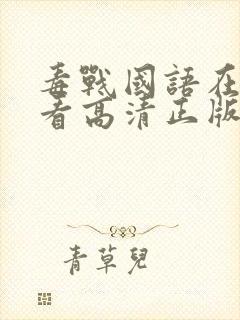 毒戰國語在
看高清正版
青草兒